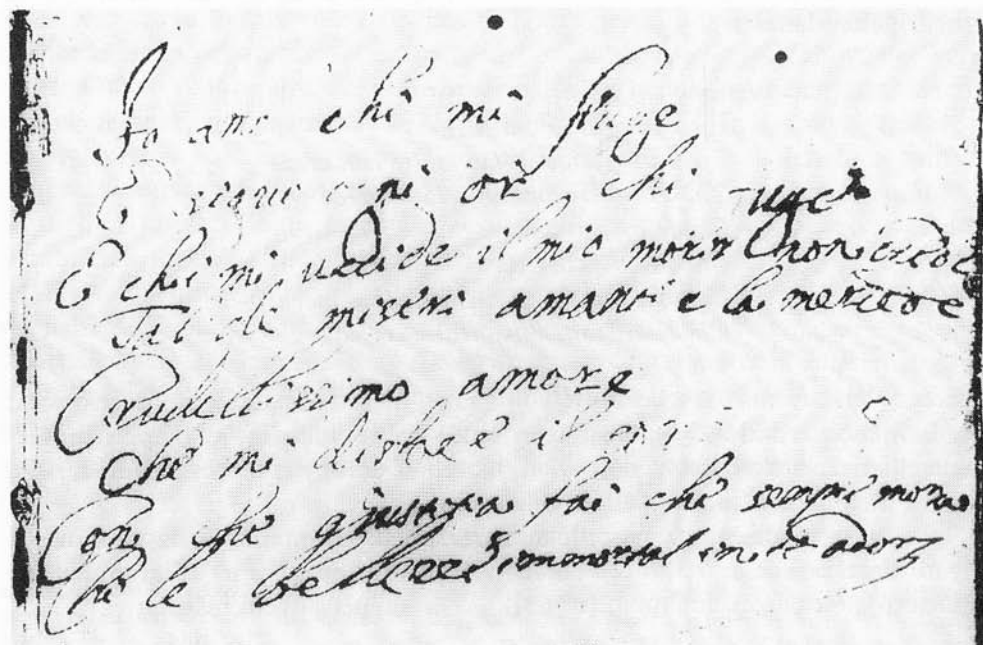 Io am chi mi fuge
E seguimi or chi fuge
E chi mi uccide il mio morir non crede
Tal de miseri amanti e la mercede
Crudelissimo amore
Che mi distre il
Con che giustitia fai che sempre mora
Chi le bellezze immortal in te adora